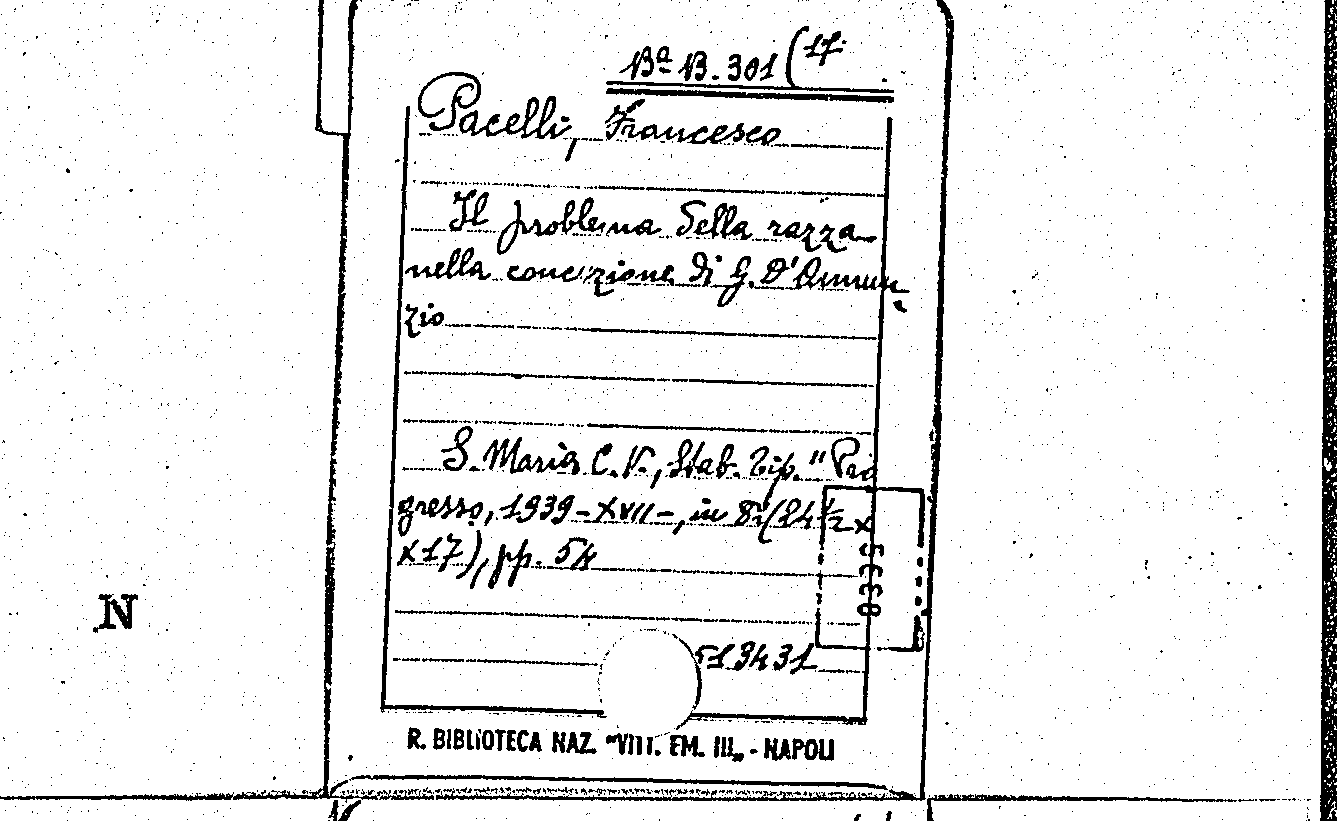 Bª B. 301 (17.
Pacelli, Francesco
Il problema della razza
nella concezione di G. D'Annun-
zio
S. Maria C. V., Stab. Tip. "Pro
gresso, 1939-XVII-, in 8º (24 ½ x
x 17), pp. 54
8335
N
513431
R. BIBLIOTECA NAZ. "VITT. EM. III„ - NAPOLI